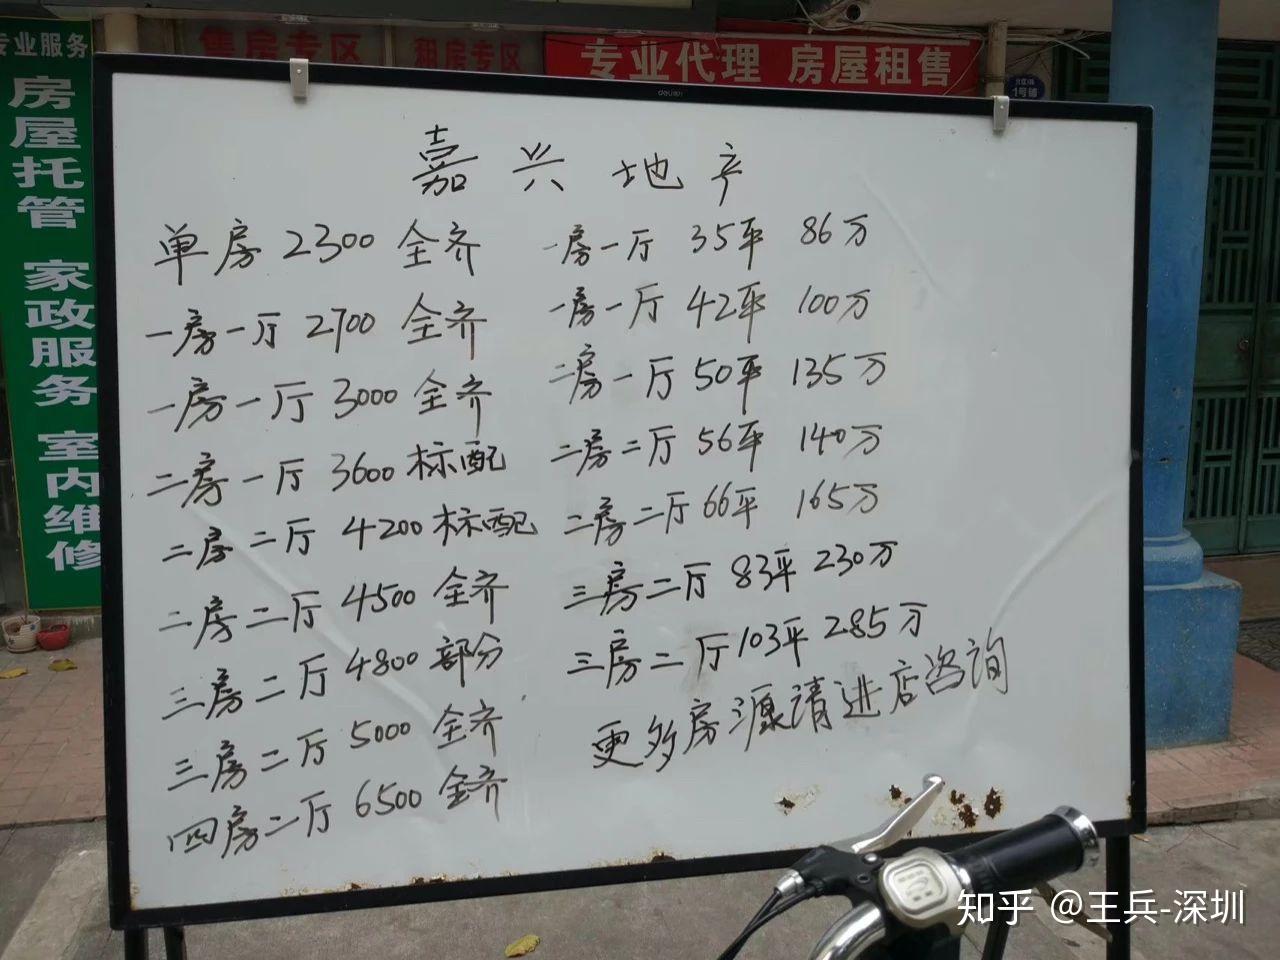 专业服务
房屋托管 家政服务 室内维修
售房专区
租房专区
专业代理 房屋租售
1号铺
deli
嘉兴地产
单房 2300 全齐
一房一厅 2700 全齐
一房一厅 3000 全齐
二房一厅 3600 标配
二房二厅 4200 标配
二房二厅 4500 全齐
三房二厅 4800 部分
三房二厅 5000 全齐
四房二厅 6500 全齐
一房一厅 35平 86万
一房一厅 42平 100万
二房一厅 50平 135万
二房二厅 56平 140万
二房二厅 66平 165万
三房二厅 83平 230万
三房二厅 103平 285万
更多房源请进店咨询
知乎 @王兵-深圳